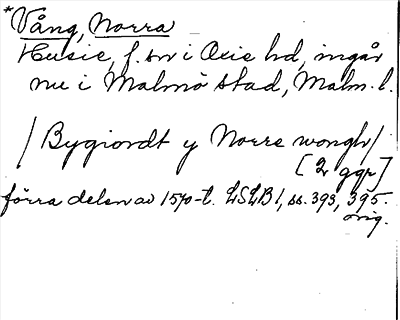 *Vång, Norra
Husie, f. sn i Oxie hd, ingår
nu i Malmö stad, Malm. l.
/ Bygiordt y Norre wongh /
[2 ggr]
förra delen av 1570-t. LSLB 1, ss. 393, 395.
orig.